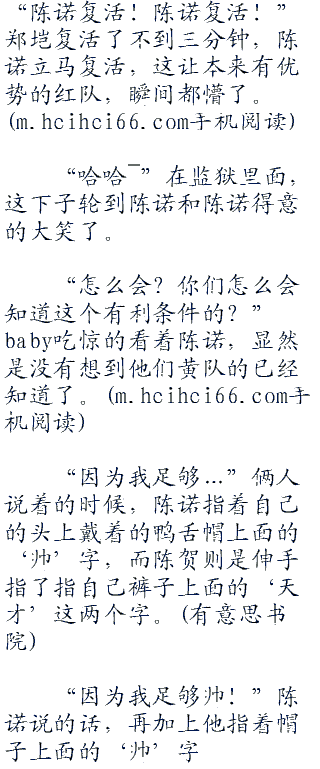 “陈诺复活！陈诺复活！”
郑垲复活了不到三分钟，陈
诺立马复活，这让本来有优
势的红队，瞬间都懵了。
(m.hcihci66.com手机阅读)
“哈哈~”在监狱里面，
这下子轮到陈诺和陈诺得意
的大笑了。
“怎么会？你们怎么会
知道这个有利条件的？”
baby吃惊的看着陈诺，显然
是没有想到他们黄队的已经
知道了。(m.hcihci66.com手
机阅读)
“因为我足够…”俩人
说着的时候，陈诺指着自己
的头上戴着的鸭舌帽上面的
‘帅’字，而陈贺则是伸手
指了指自己裤子上面的‘天
才’这两个字。(有意思书
院)
“因为我足够帅！”陈
诺说的话，再加上他指着帽
子上面的‘帅’字